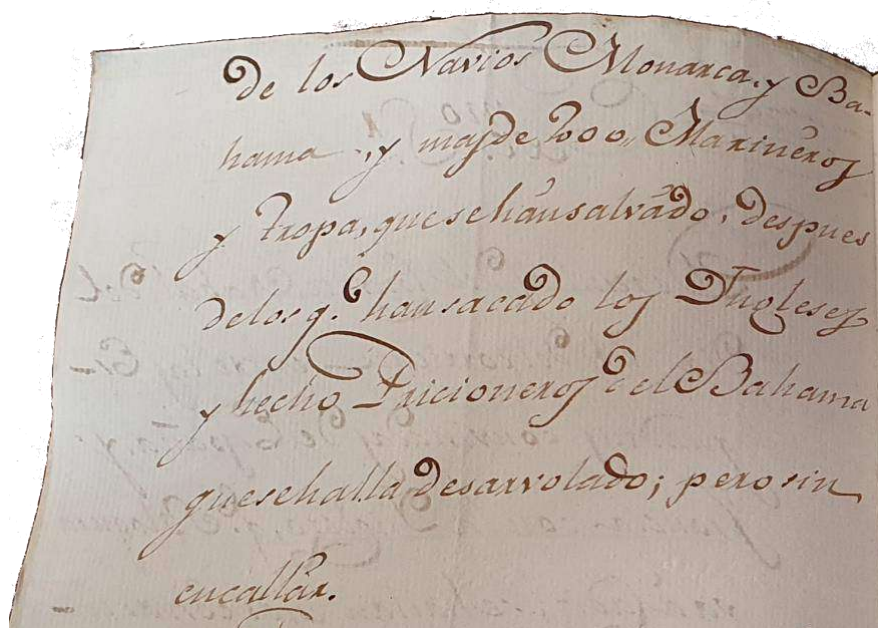 de los Navios Monarca, y Ba-
hama, y mas de 2000,, Marineros
y Tropa, que se hán salvádo, despues
de los q.e han sacado los Yngleses
y hecho Pricioneros del Bahama
que se halla desarvolado; pero sin
encallár.